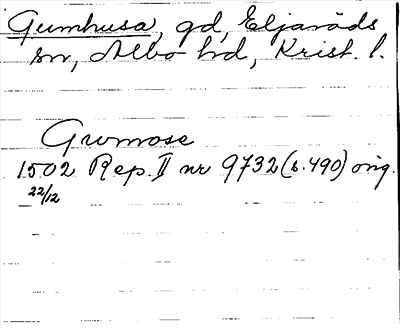 Gumhusa, gd, Eljaröds
sn, Albo hd, Krist. l.
Gumose
1502 Rep. II nr 9732 (s. 490) orig.
22/12